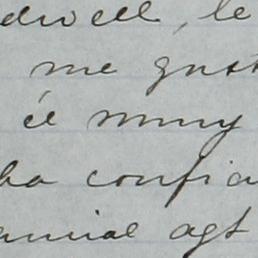 dwell, le
me gust
él muy
ha confia
anial agt